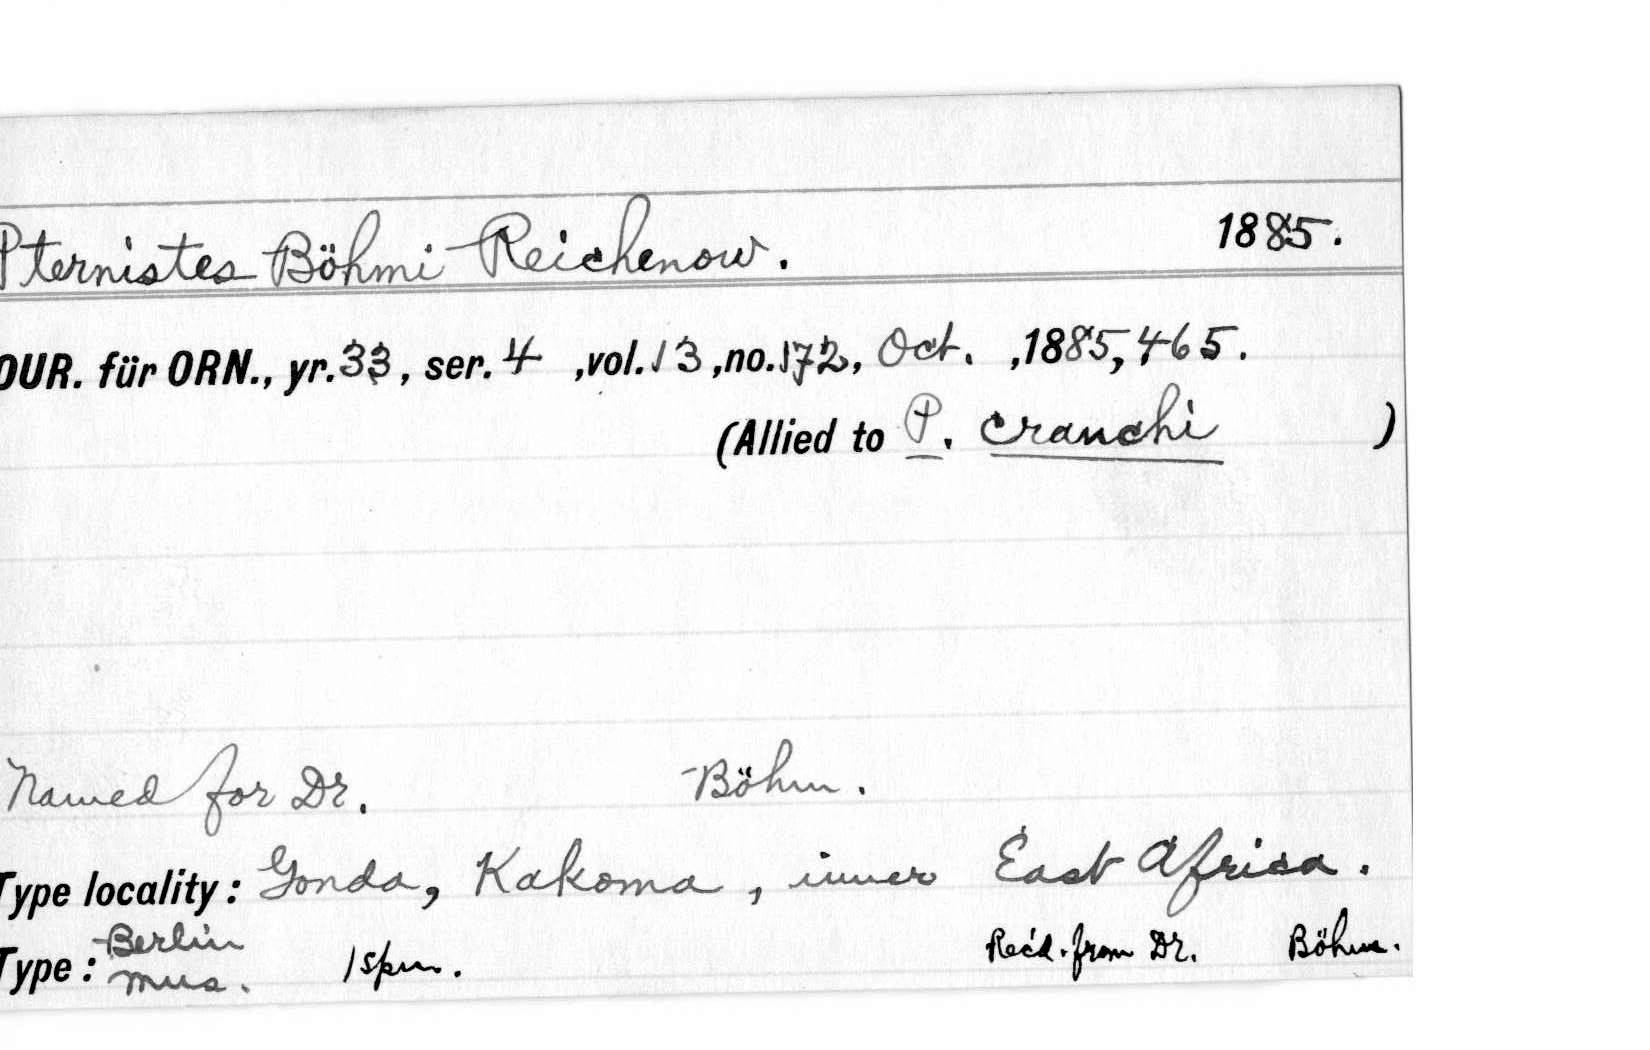 Pternistes Böhmi Reichenow. 1885.
OUR. für ORN., yr. 33, ser. 4 ,vol. 13 ,no. 172, Oct. ,1885, 465.
(Allied to P. cranchi )
Named for Dr. Böhm.
Type locality: Gonda, Kakoma, inner East Africa.
Type: Berlin mus. 1 spm. Rec'd. from Dr. Böhm.